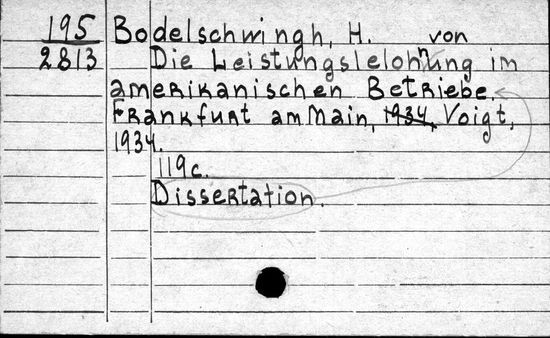 195 Bodelschwingh, H. von
2813 Die Leistungslelohnung im
amerikanischen Betriebe
Frankfurt am Main, 1934, Voigt,
1934.
119c.
Dissertation.